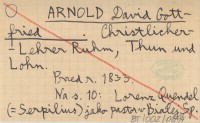 ARNOLD David Gott-
fried Christlicher
Lehrer Ruhm, Thun und
Lohn.
Przed r. 1833.
Na s. 10: Lorenz Quendel
(=Serpilius) jako pastor